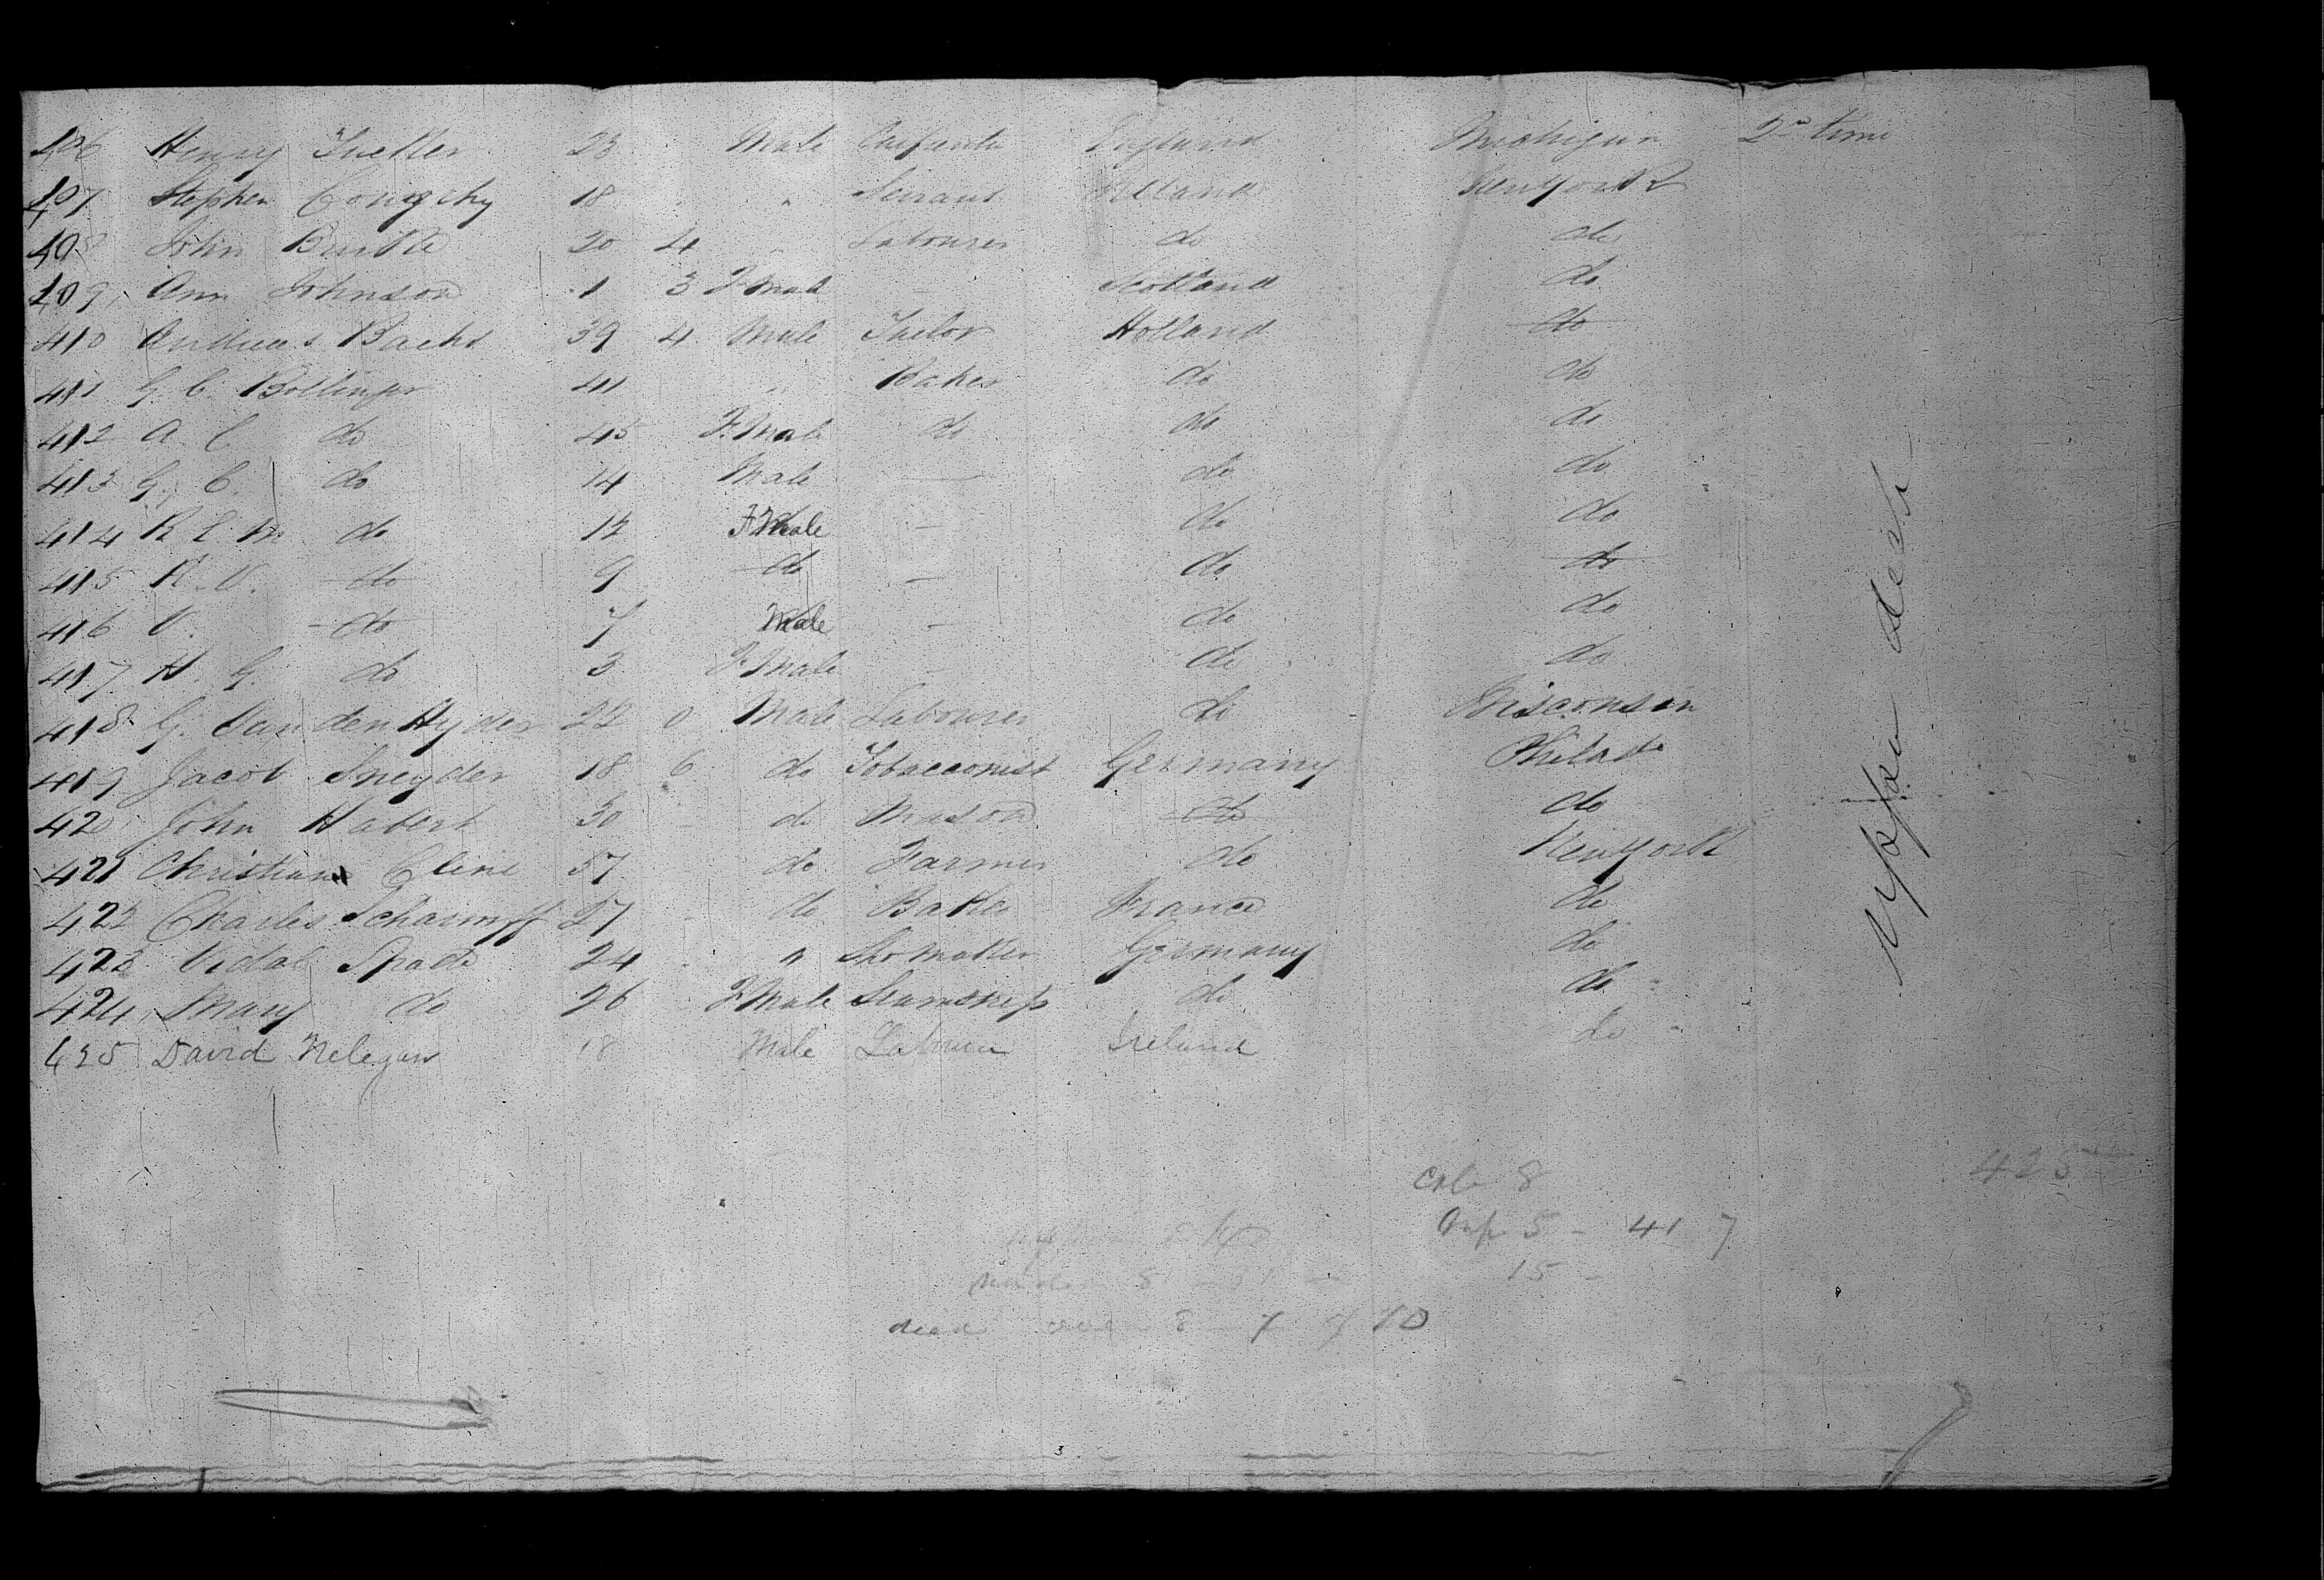 406 Henry Tucker 23 Male England Michigan 2d time
407 Stephen 18 " Servant Ireland New York
408 John Burke 20 4 " Labourer do do
409 Ann Johnson 1 3 F.Male — Scotland do
410 Andreas Bachs 39 4 Male Taelor Holland do
411 G. C. Bollinger 41 " Baker do do
412 A. C. do 45 F.Male do do do
413 G. C. do 14 Male — do do
414 do 12 F Male — do do
415 R. V. do 9 do — do do
416 V. do 7 Male — do do
417 H. G. do 3 F.Male — do do
418 G. Van den Hyder 22 0 Male Labourer do Wisconsin
419 Jacob Sneyder 18 6 do Tobacconist Germany Philad
420 John Habert 30 do Mason do do
421 Christian Cline 57 do Farmer do New York
422 Charles 27 do Baker France do
423 Vidal Spade 24 " Shomaker Germany do
424 Mary do 26 F.Male do do
425 David Nelegan 18 Male Labourer Ireland do
Upper deck
425
8
5 - 41 7
15 -
dead over 8
3